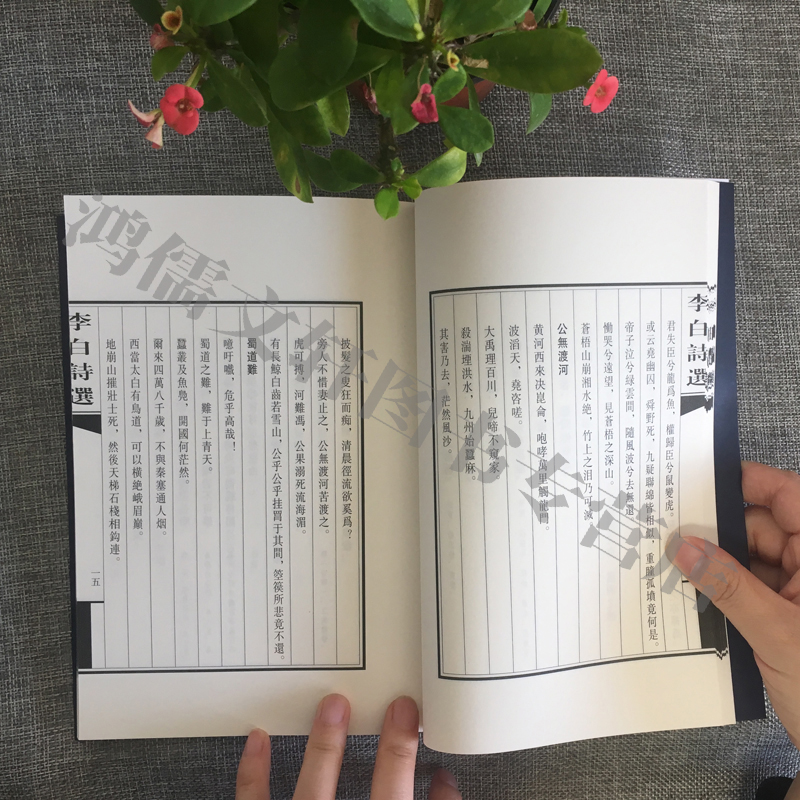 李白詩選
君失臣兮龍爲魚，權歸臣兮鼠變虎。
或云堯幽囚，舜野死，九疑聯綿皆相似，重瞳孤墳竟何是。
帝子泣兮綠雲間，隨風波兮去無還
慟哭兮遠望，見蒼梧之深山。
蒼梧山崩湘水絶，竹上之泪乃可滅
公無渡河
黄河西來决崑崙，咆哮萬里觸龍門。
波滔天，堯咨嗟。
大禹理百川，兒啼不窺家
殺湍堙洪水，九州始蠶麻。
其害乃去，茫然風沙。
披髮之叟狂而痴，清晨徑流欲奚爲？
旁人不惜妻止之，公無渡河苦渡之。
虎可搏，河難馮，公果溺死流海湄。
有長鯨白齒若雪山，公乎公乎挂罥于其間，箜篌所悲竟不還。
蜀道難
噫吁嚱，危乎高哉！
蜀道之難，難于上青天。
蠶叢及魚鳧，開國何茫然。
爾來四萬八千歲，不與秦塞通人烟。
西當太白有鳥道，可以橫絶峨眉巔。
地崩山摧壯士死，然後天梯石棧相鈎連。
李白詩選
一五
鸿儒文轩图书专营店